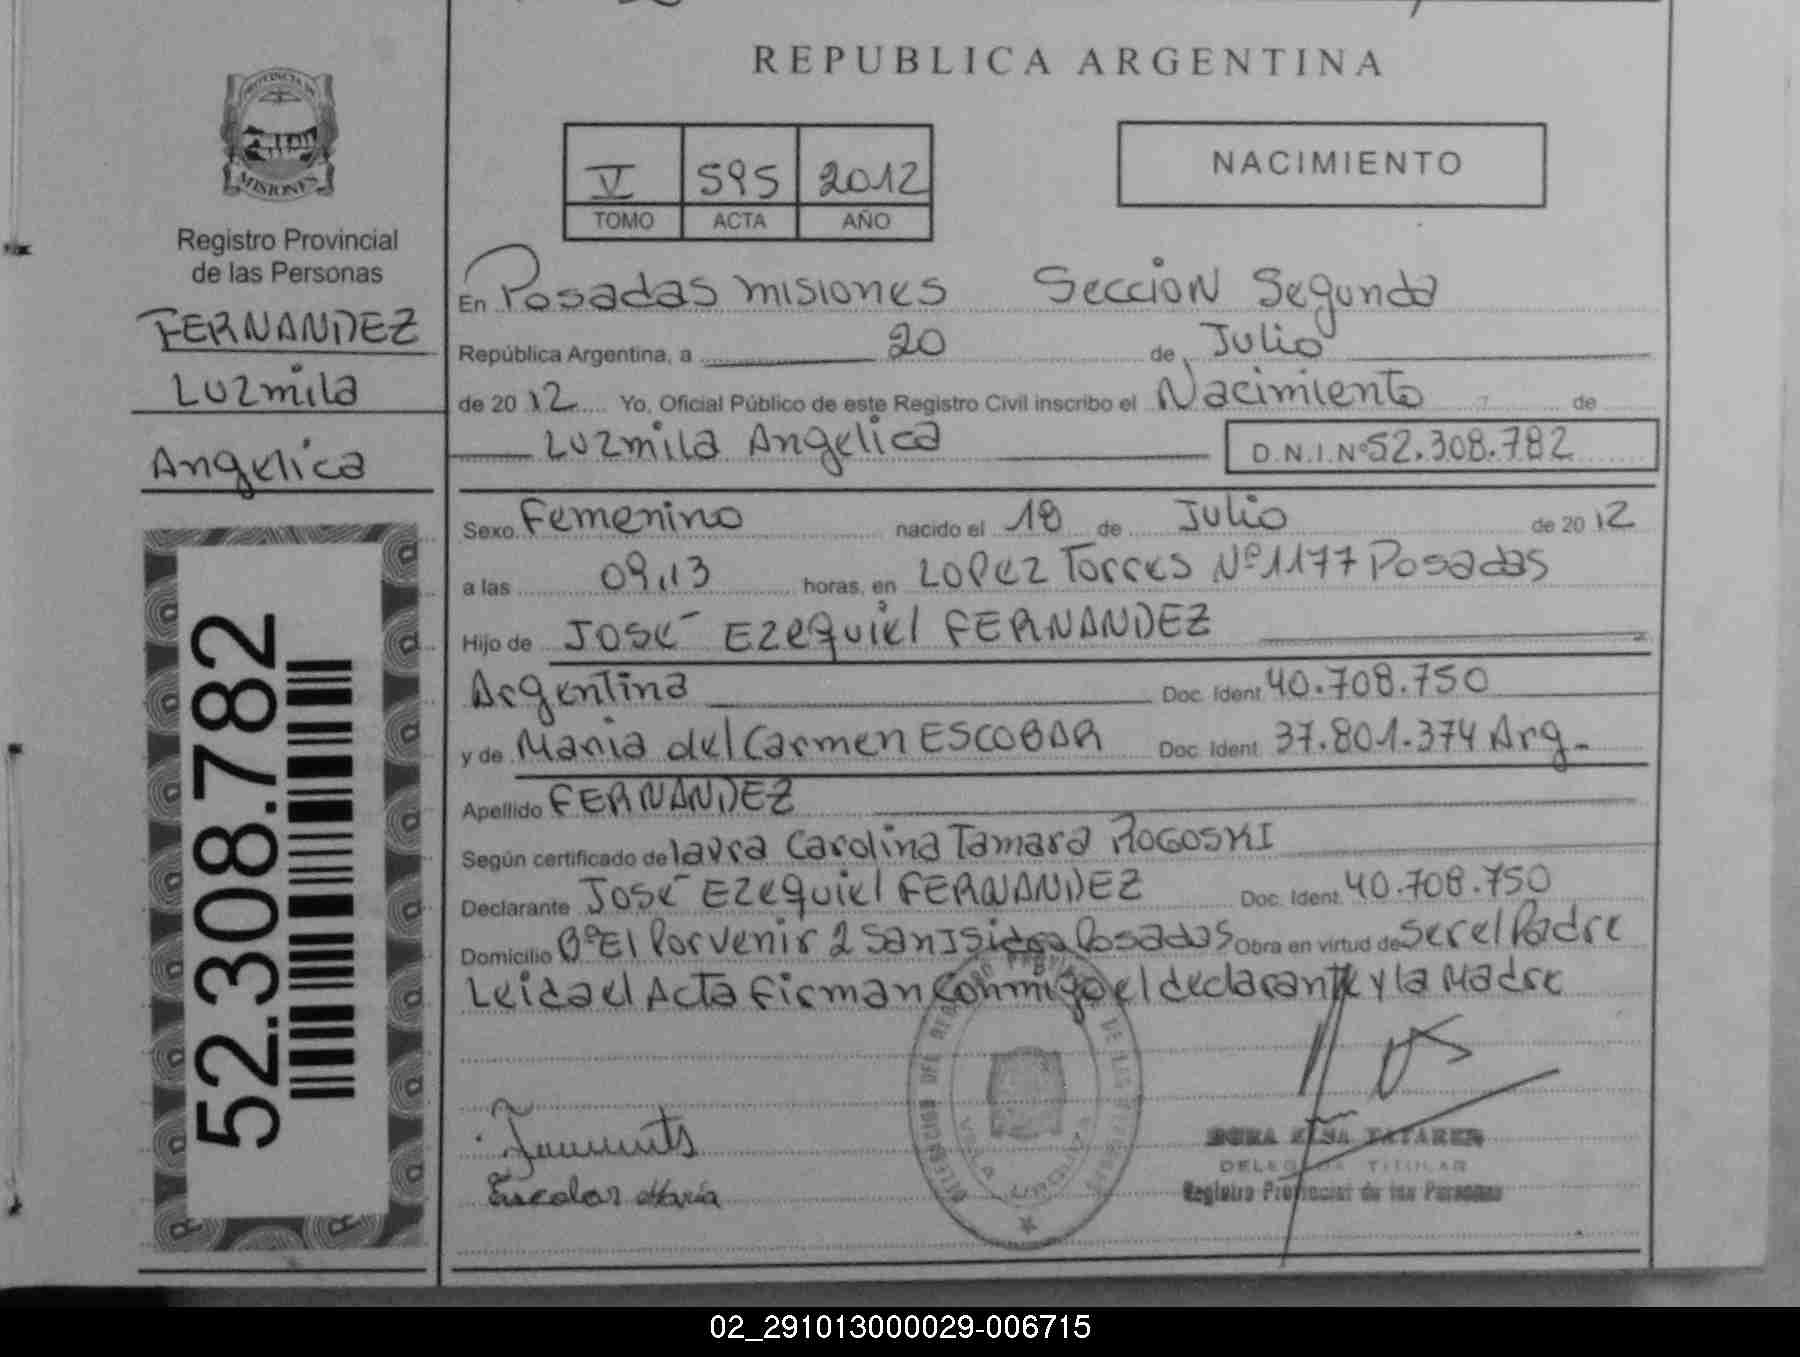 REPUBLICA ARGENTINA
PROVINCIA DE
MISIONES
Registro Provincial
de las Personas
FERNANDEZ
Luzmila
Angelica
52.308.782
V 595 2012
TOMO ACTA AÑO
NACIMIENTO
En Posadas misiones Seccion Segunda
República Argentina, a 20 de Julio
de 20 12 Yo, Oficial Público de este Registro Civil inscribo el Nacimiento de
Luzmila Angelica D.N.I.Nº 52.308.782
Sexo Femenino nacido el 18 de Julio de 20 12
a las 09,13 horas, en Lopez Torres Nº 1177 Posadas
Hijo de José Ezequiel FERNANDEZ
Argentina Doc. Ident. 40.708.750
y de Maria del Carmen ESCOBAR Doc. Ident. 37.801.374 Arg.
Apellido FERNANDEZ
Según certificado de laura Carolina Tamara ROGOSKI
Declarante José Ezequiel FERNANDEZ Doc. Ident. 40.708.750
Domicilio Bº El Porvenir 2 San Isidro Posadas Obra en virtud de ser el Padre
Leida el Acta Firman Conmigo el declarante y la Madre
Escobar María
DELEGADA TITULAR
Registro Provincial de las Personas
02_291013000029-006715